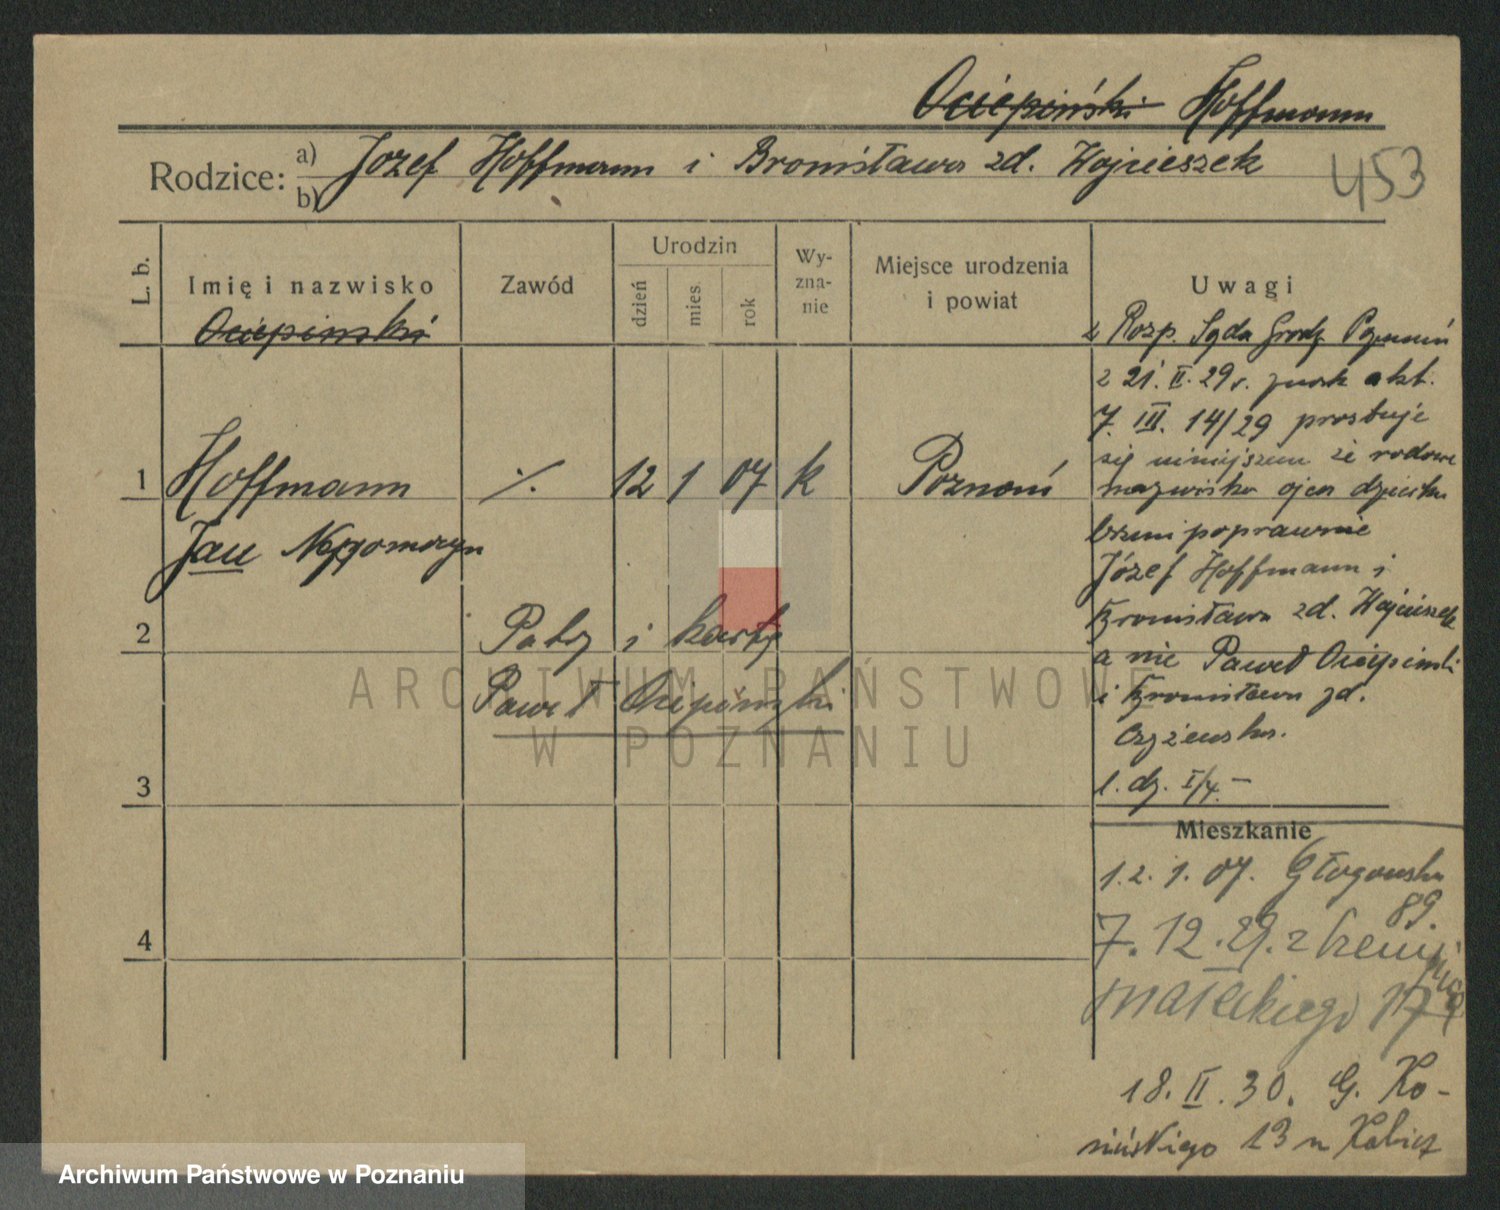 Ociepiński Hoffmann
Rodzice: a) b) Józef Hoffmann i Bronisława zd. Wojcieszek
453
L. b.
Imię i nazwisko
Ociepiński
Zawód
Urodzin
dzień
mies.
rok
Wy-
zna-
nie
Miejsce urodzenia
i powiat
Uwagi
z Rozp. Sądu Grodz Poznań
z 21. II. 29 r. znak akt.
7. III. 14/29 prostuje
się niniejszem że rodowe
nazwisko ojca dziecka
brzmi poprawnie
Józef Hoffmann i
Bronisława zd. Wojcieszek
a nie Paweł Ociepiński
i Bronisława zd.
1. dz. I/4. -
1 Hoffmann ./. 12 1 07 k Poznań
Jan Nepomucyn
2
Patrz i kartę
Paweł Ociepiński
3
4
Mieszkanie
12. 1. 07. Głogowska
89.
7. 12. 29. z
Małeckiego 17
18. II. 30. G. Ko-
sińskiego 13 u
ARCHIWUM PAŃSTWOWE
W POZNANIU
Archiwum Państwowe w Poznaniu